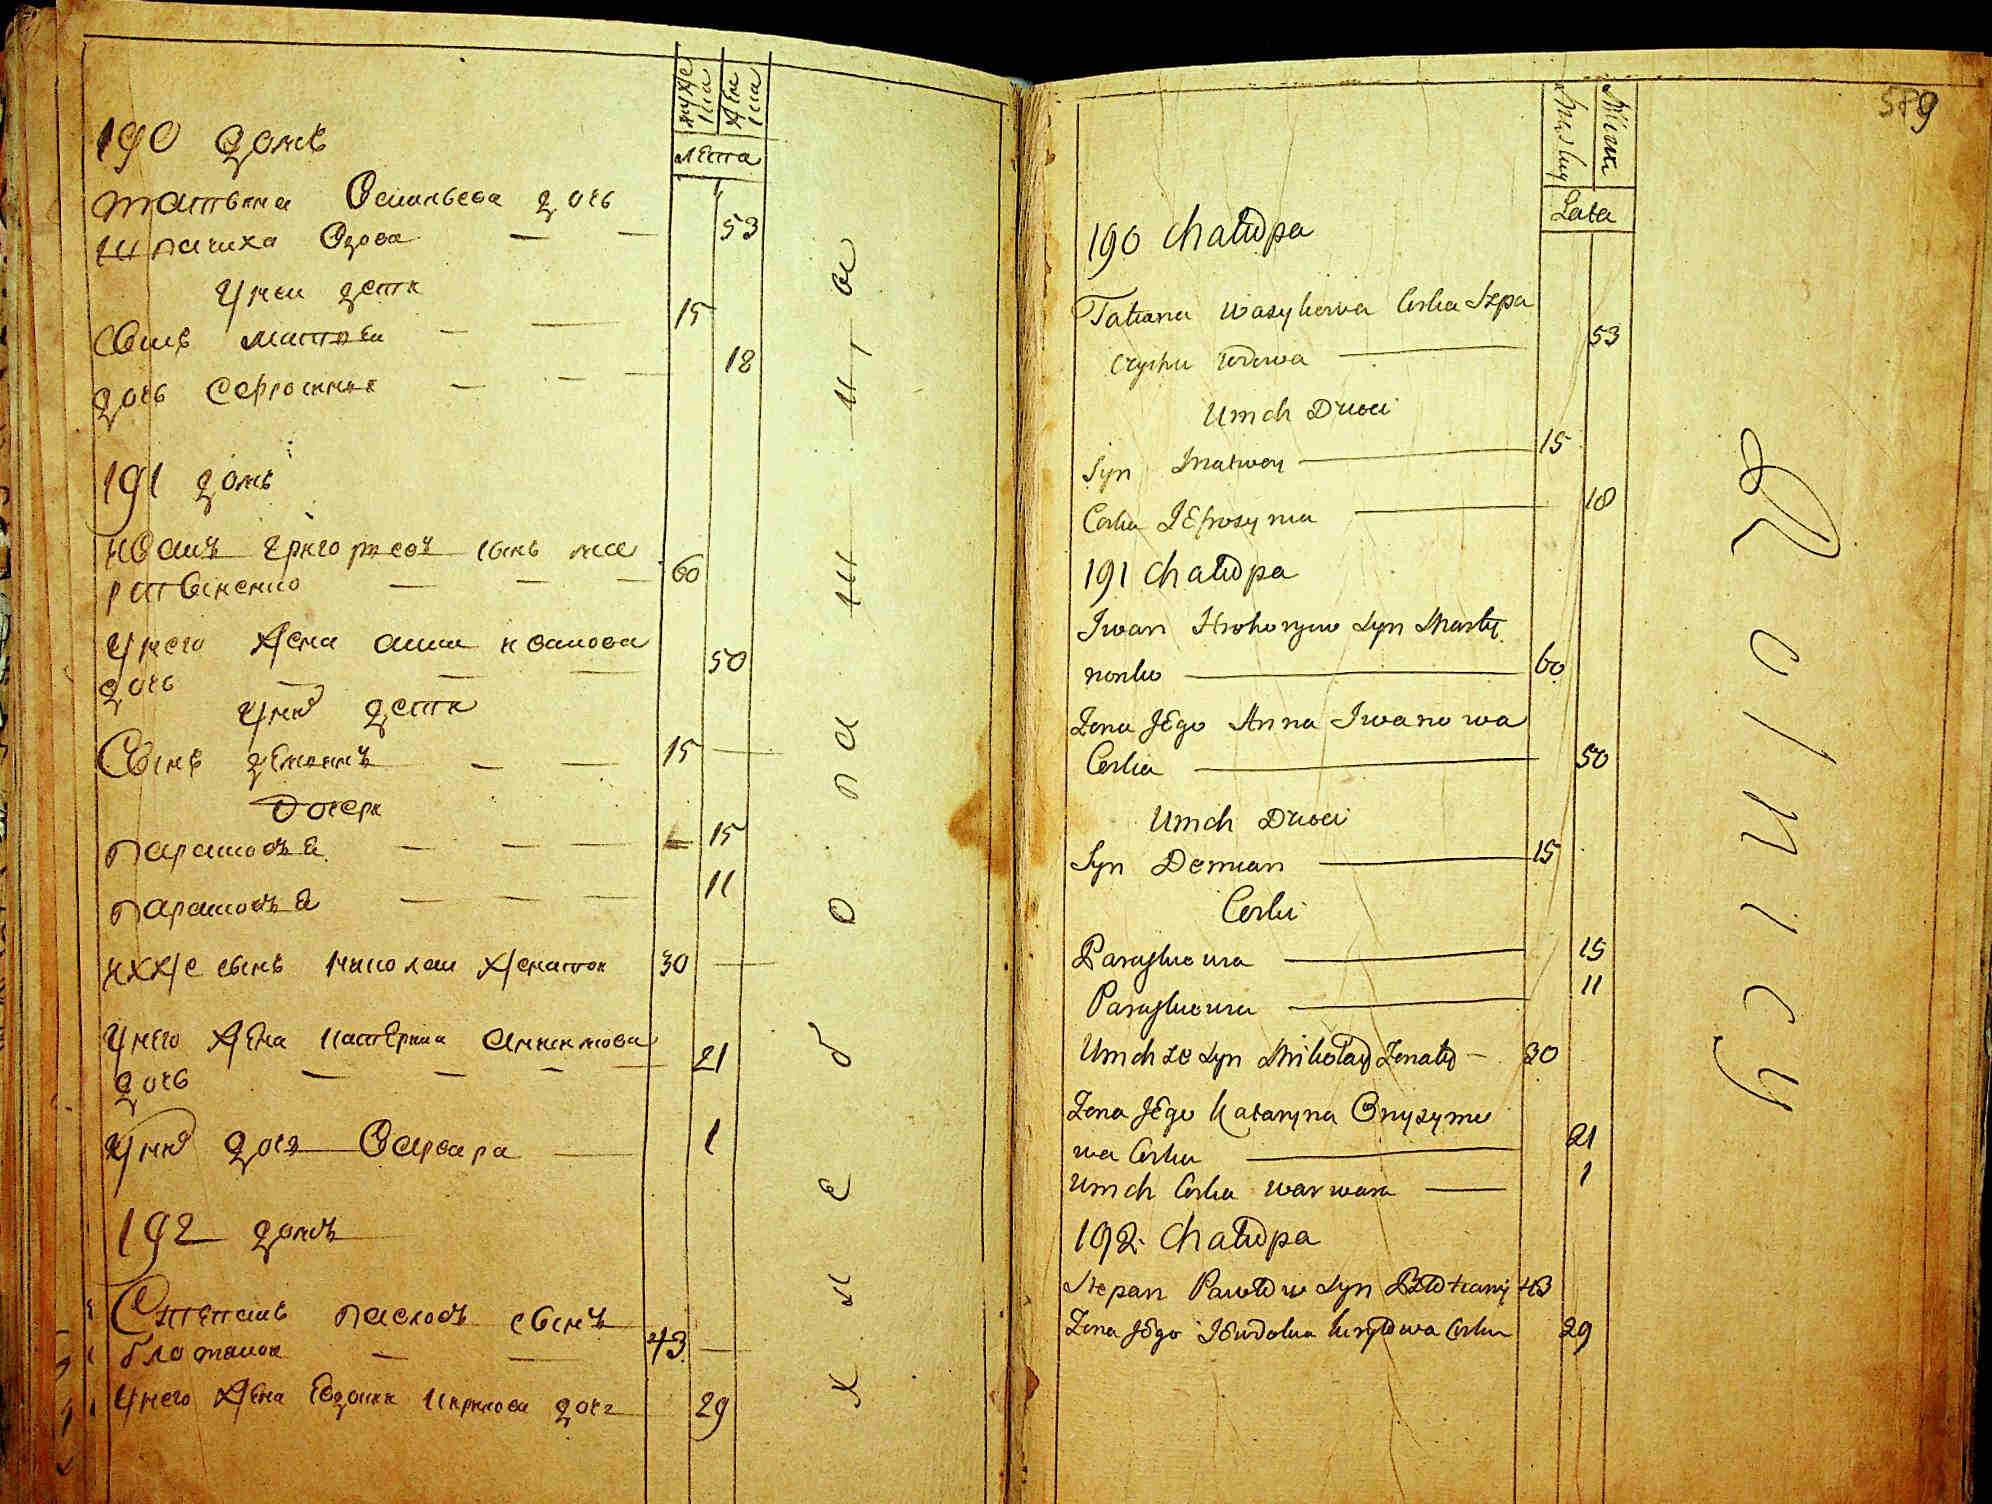 мужеска
женска
лета
190 домъ
татьяна Васильева дочь
шпачиха вдова — — 53
У неи дети
Сынъ матвеи — — 15
дочь Ефросиния — — — 18
191 домъ
иванъ григорьевъ сынъ ма
ртыненко — — — 60
У него жена анна иванова
дочь — — — 50
У них дети
Сынъ демянъ — — 15 —
Дочери
парасковья — — — 15
парасковья — — — 11
их же сынъ николаи женатои 30 —
У него жена катерина анисимова
дочь — — — — 21
У них дочь Варвара — 1
192 домъ
Степанъ павловъ сынъ
блотанои — — 43 —
У него жена Евдокия кирилова дочь 29
х л е б о п а ш ц а
579
Męskuy
Żenska
Lata
190 chałupa
Tatiana Wasylewa Corka Szpa
czycha wdowa — 53
Umch Dzieci
Syn Matwey — 15
Corka JEfrosynia — 18
191 chałupa
Iwan Hrehoryiw Syn Marty
nenko — 60
Zona JEgo Anna Iwanowa
Corka — 50
Umch Dzieci
Syn Demian — 15
Corki
Paraskewia — 15
Paraskewia — 11
Umch ze Syn Mikołay Zonaty — 30
Zona JEgo Kataryna Onyzymo
wa Corka — 21
Umch Corka Warwara — 1
192. chałupa
Stepan Pawłow Syn 43
Zona JEgo JEwdokia Kiryłowa Corka 29
R o l n i c y